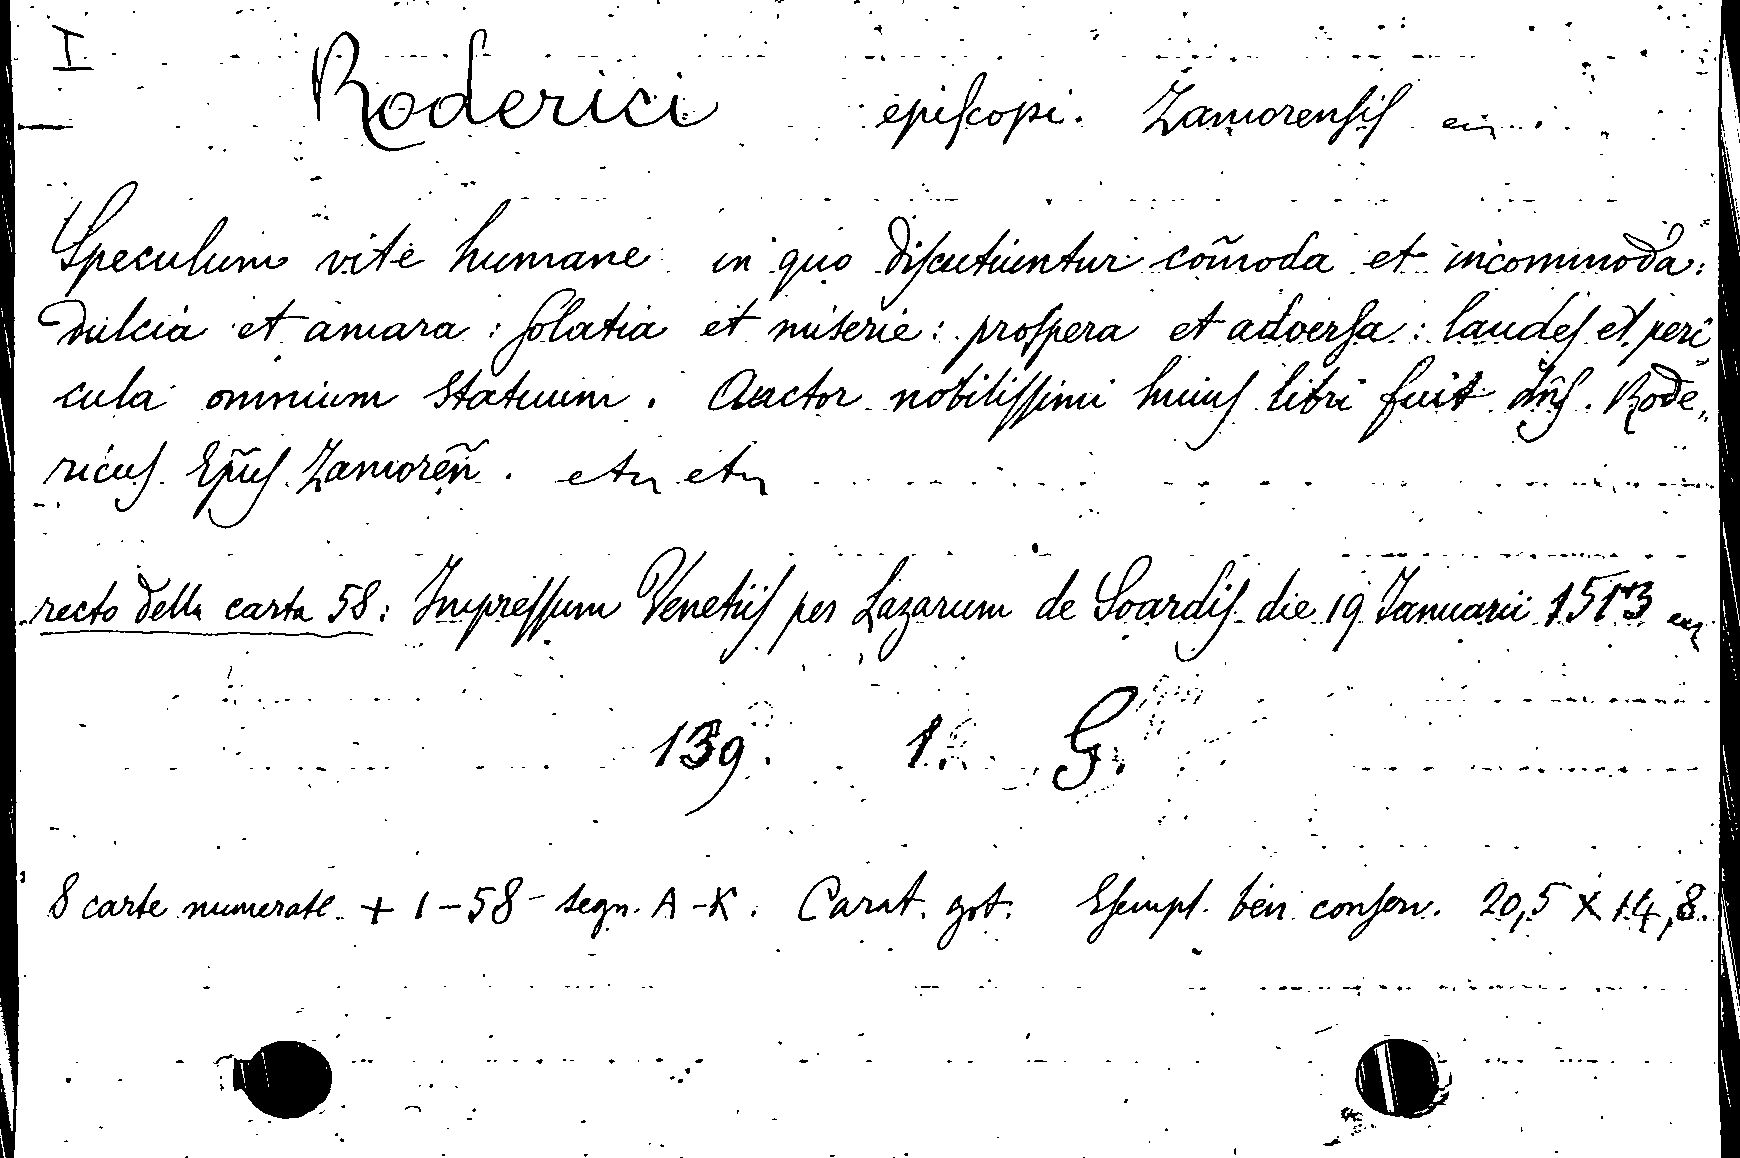 I
Roderici epiſcopi. Zamorenſiſ
Speculum vite humane in quo diſcutiuntur com̃oda et incommoda:
dulcia et amara: ſolatia et miserie: proſpera et adverſa: laudeſ et peri
cula omnium statuum. Auctor nobiliſſimi huiuſ libri fuit dn̄ſ. Rode„
ricuſ Ep̃uſ Zamoreñ. etc etc
recto della carta 58: Impreſſum Venetiiſ per Lazarum de Soardiſ die 19 Januarii 1513
139. 1 G.
8 carte numerate + 1-58 - segn. A-K. Carat. got. Eſempl. ben conſerv. 20,5 X 14,8.